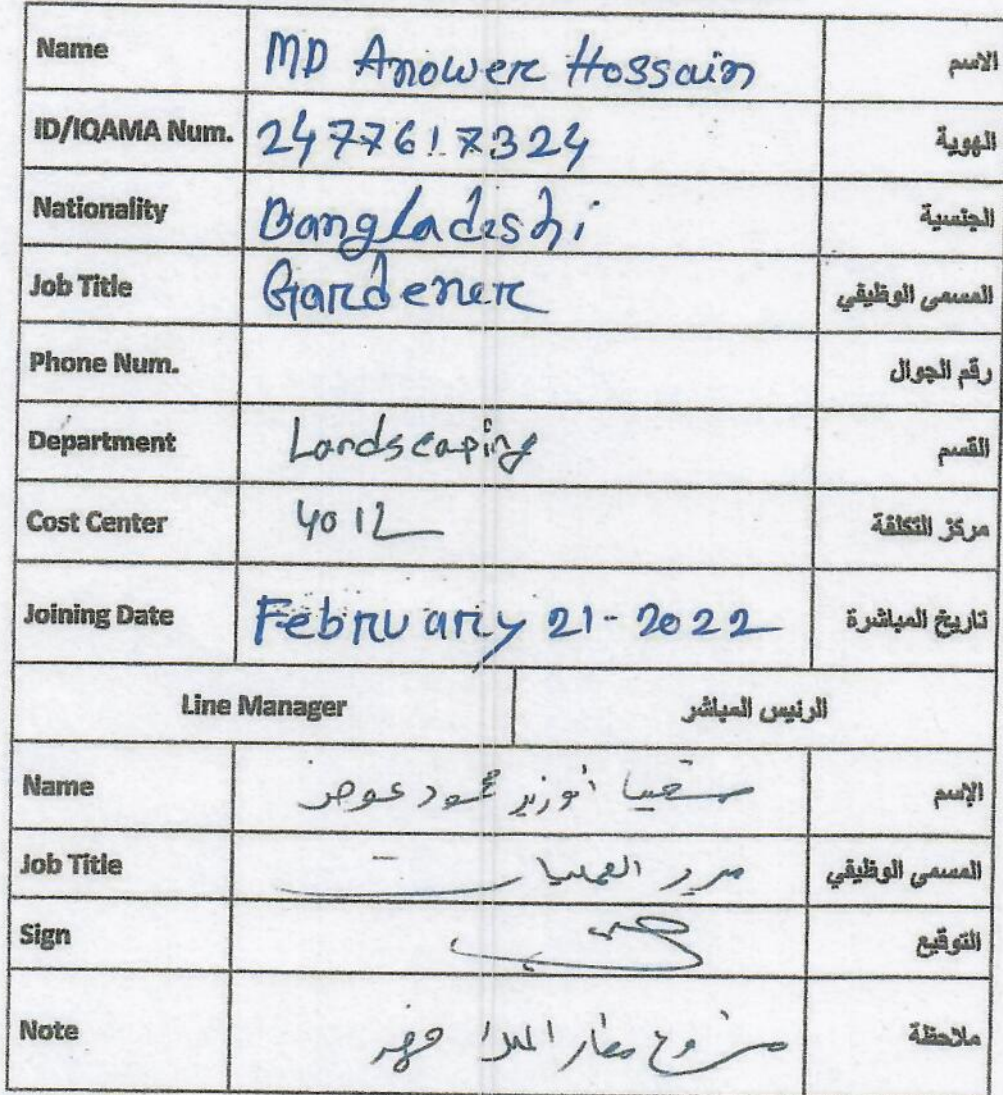 Name MD Anower Hossain الاسم
ID/IQAMA Num. 2477617324 الهوية
Nationality Bangladeshi الجنسية
Job Title Gardener المسمى الوظيفي
Phone Num. رقم الجوال
Department Landscaping القسم
Cost Center 4012 مركز التكلفة
Joining Date February 21-2022 تاريخ المباشرة
Line Manager الرئيس المباشر
Name محمود عوض الإسم
Job Title مدير العمليات المسمى الوظيفي
Sign التوقيع
Note مشروع مطار الملك ملاحظة